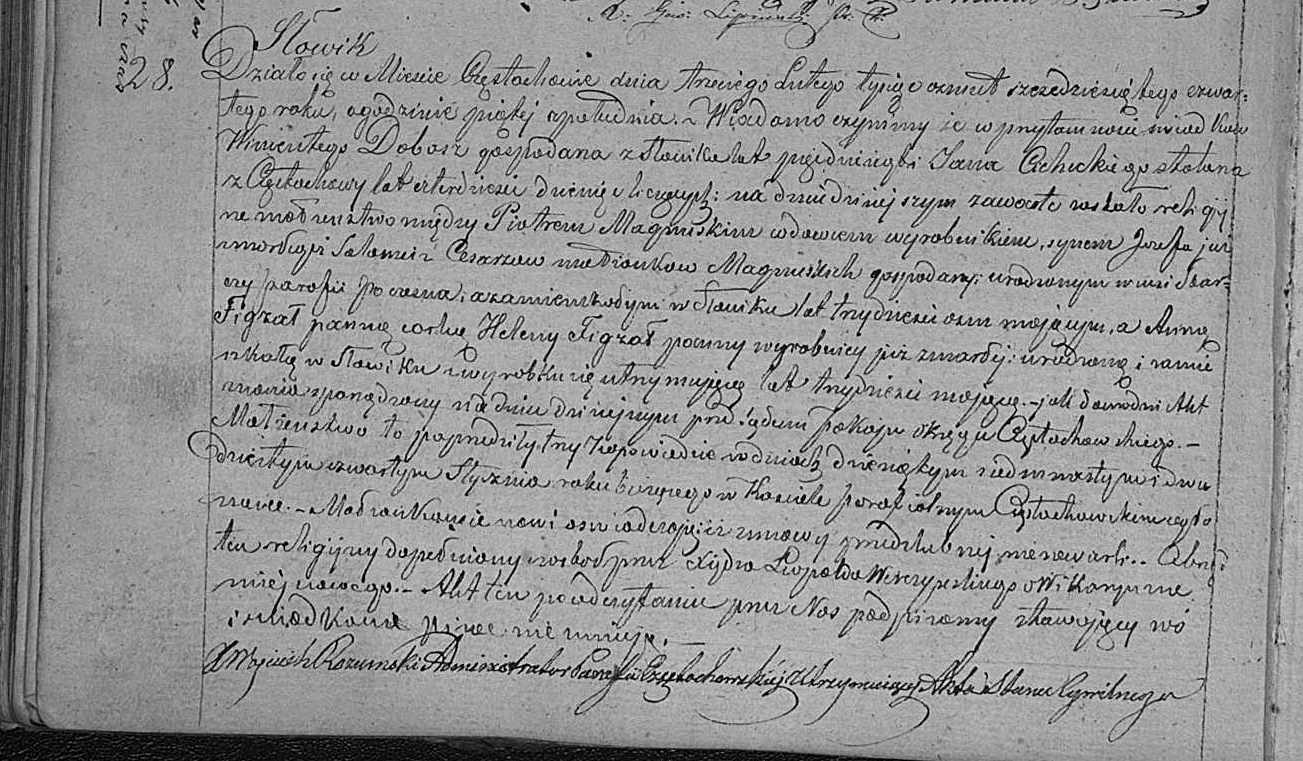 Słowik
28. Działo się w Mieście Częstochowie dnia trzeciego Lutego tysiąc osmset sześćdziesiątego czwar-
tego roku, o godzinie piątej z południa. Wiadomo czynimy że w przytomności świadków
Wincentego Dobosz gospodarza z Słowika lat pięćdziesiąt i Jana Cichockiego stolarza
z Częstochowy lat czterdzieści dziewięć liczących; na dniu dzisiejszym zawarte zostało religij
ne małżeństwo między Piotrem Magnuskim wdowcem wyrobnikiem, synem Józefa już
zmarłego i Salomei z Cesarzow małżonkow Magnuskich gospodarzy; urodzonym w wsi Star-
czy parafii Poczesna, a zamieszkałym w Słowiku lat trzydzieści osm mającym, a Anną
Figzał panną córką Heleny Figzał panny wyrobnicy już zmarłej; urodzoną i zamie
szkałą w Słowiku z wyrobku się utrzymującą lat trzydzieści mającą. – jak dowodzi Akt
znania sporządzony na dniu dzisiejszym przed Sądem Pokoju okręgu Częstochowskiego. –
Małżeństwo to poprzedziły trzy zapowiedzie w dniach dziesiątym siedmnastym i dwu
dziestym czwartym Stycznia roku bieżącego w Kościele parafialnym Częstochowskim ogło
szone. – Małżonkowie nowi oświadczają iż umowy przedślubnej nie zawarli. Obrzęd
ten religijny dopełniony został przez Xiędza Leopolda Wikaryusza
miejscowego. – Akt ten po odczytaniu przez Nas podpisany stawający bo
i świadkowie pisać nie umieją. –
X Wojciech Rozumski Administrator Parafii Częstochowskiej Utrzymujący Akta Stanu Cywilnego